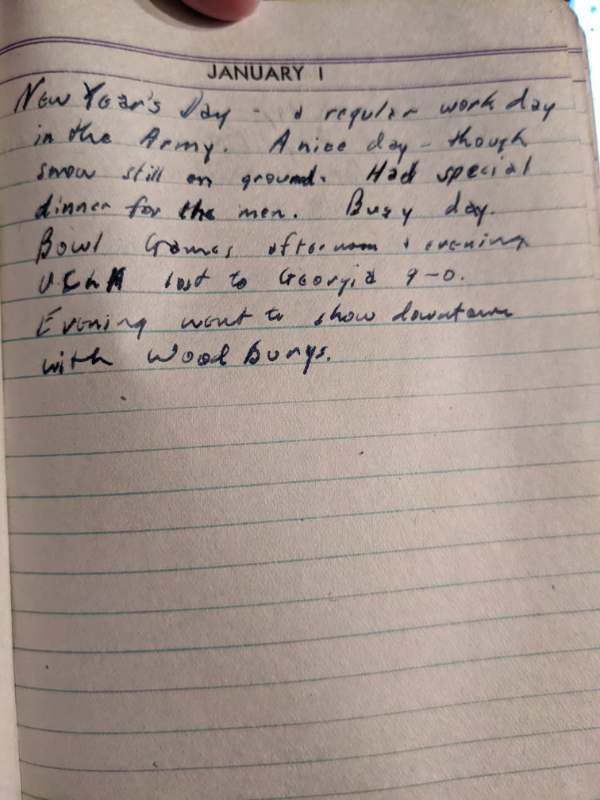 JANUARY 1
New Year's Day - a regular work day
in the Army. A nice day - though
snow still on ground. Had special
dinner for the men. Busy day.
Bowl Games afternoon & evening
UCLA lost to Georgia 9-0.
Evening went to show downtown
with Wood Burys.